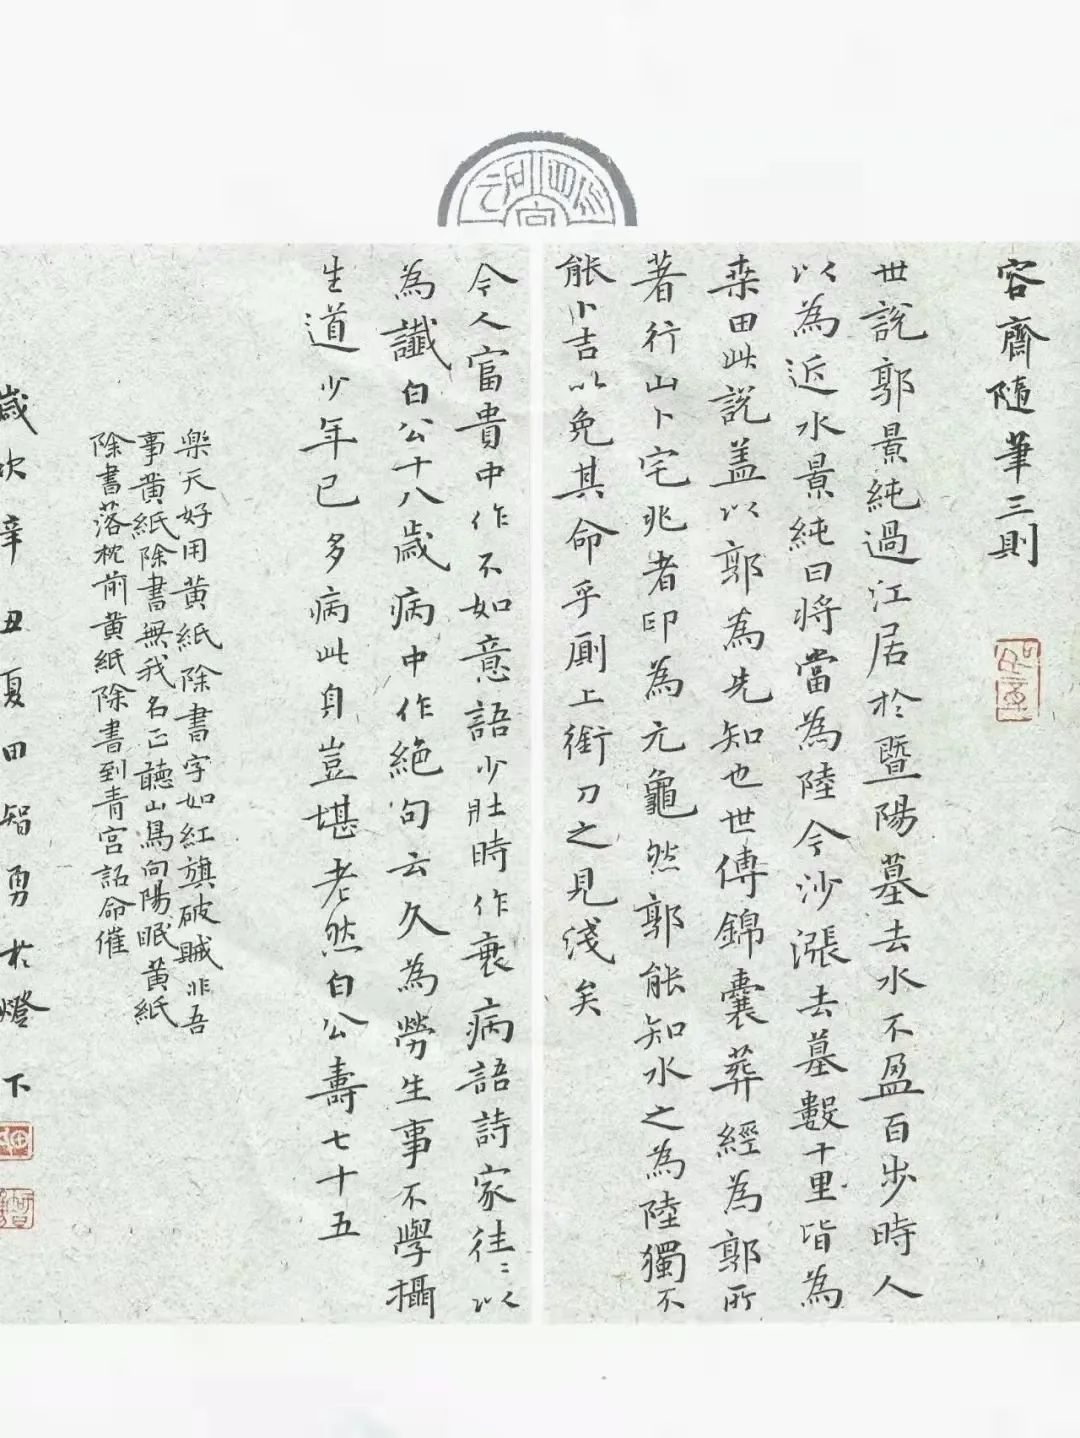 容齋隨筆三則
世說郭景純過江居於暨陽墓去水不盈百步時人
以為近水景純曰將當為陸今沙漲去墓數千里皆為
桒田此說蓋以郭為先知也世傳錦囊葬經為郭所
著行山卜宅兆者印為元龜然郭能知水之為陸獨不
能卜吉以免其命乎厠上銜刀之見淺矣
今人富貴中作不如意語少壯時作衰病語詩家往〻以
為讖白公十八歲病中作絕句云久為勞生事不學攝
生道少年已多病此身豈堪老然白公壽七十五
樂天好用黄紙除書字如紅旗破賊非吾
事黄紙除書無我名正聽山鳥向陽眠黄紙
除書落枕前黄紙除書到青宮詔命催
歲次辛丑夏田智勇於燈下